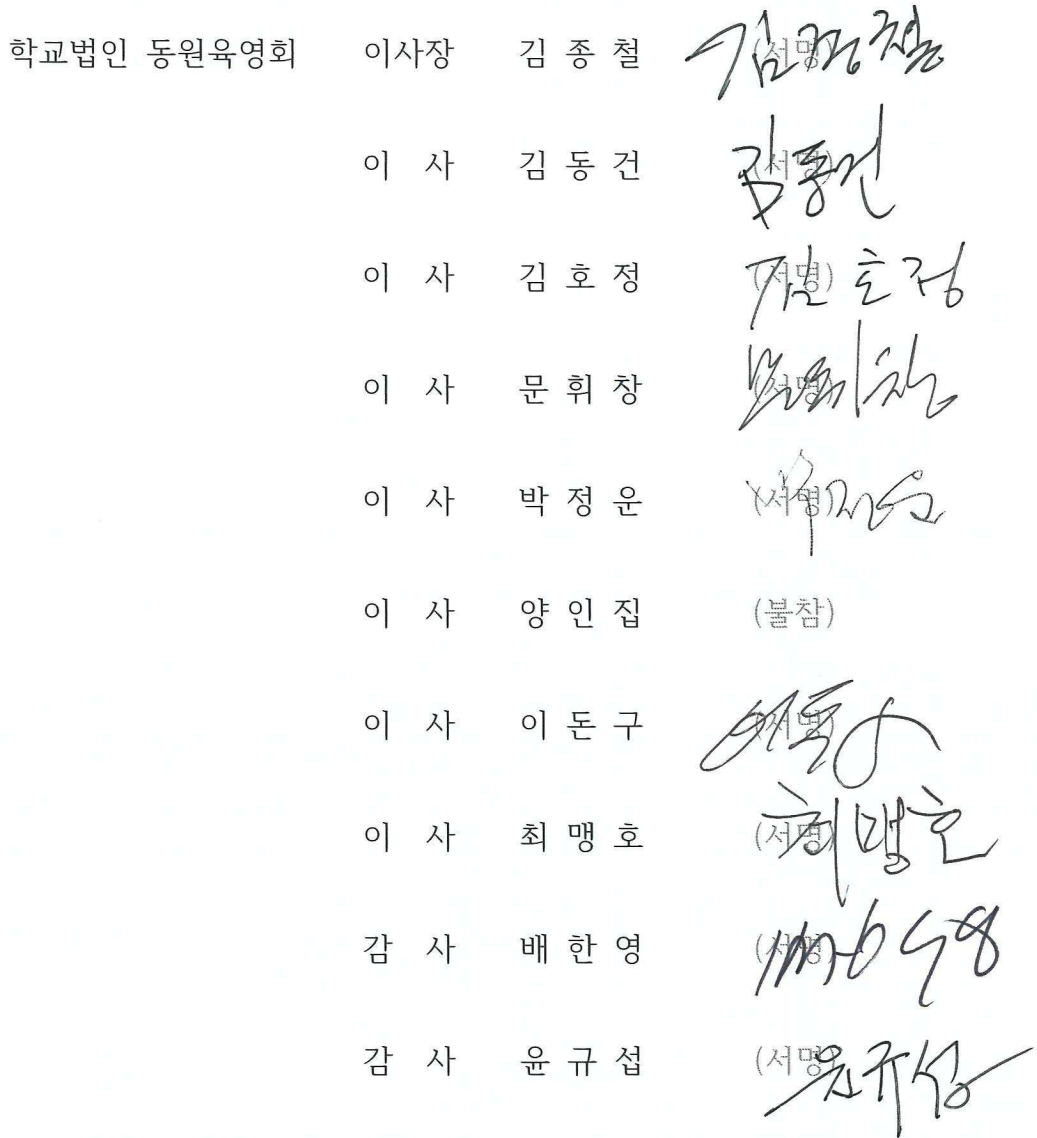 학교법인 동원육영회 이사장 김 종 철 (서명) 김종철
이 사 김 동 건 (서명) 김동건
이 사 김 호 정 (서명) 김호정
이 사 문 휘 창 (서명) 문휘창
이 사 박 정 운 (서명)
이 사 양 인 집 (불참)
이 사 이 돈 구 (서명) 이돈구
이 사 최 맹 호 (서명) 최맹호
감 사 배 한 영 (서명)
감 사 윤 규 섭 (서명) 윤규섭